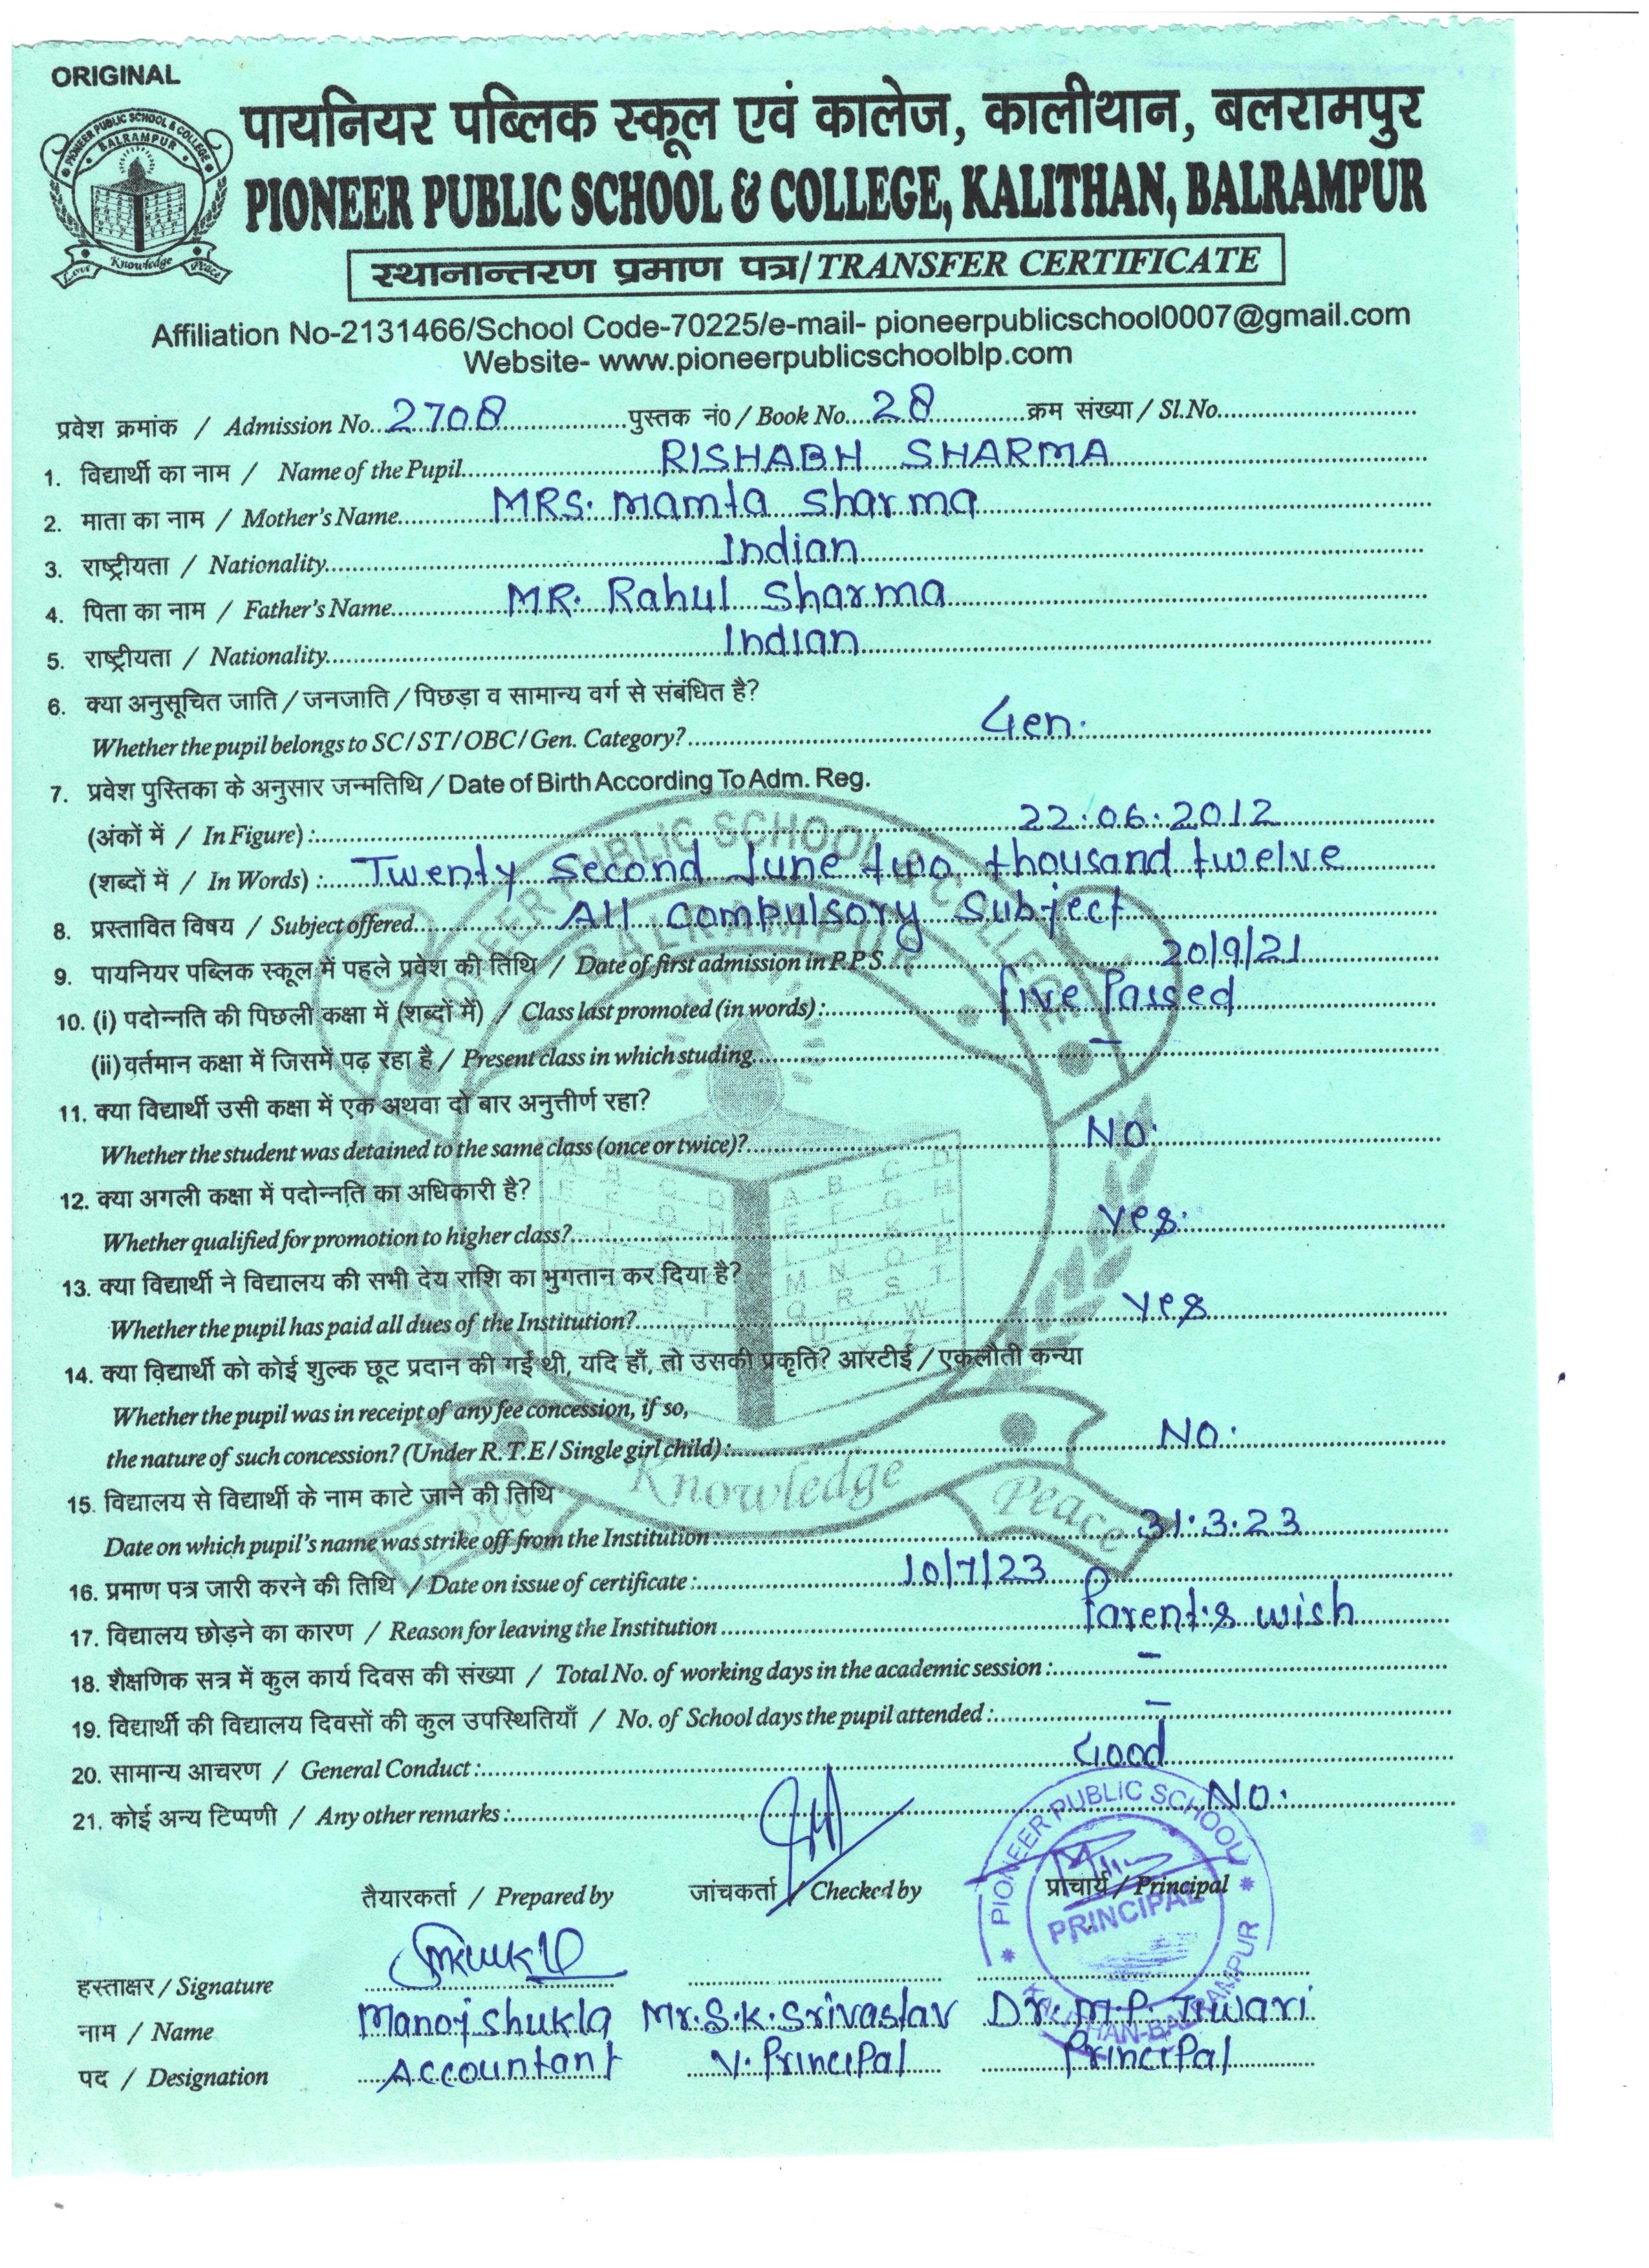 ORIGINAL
PIONEER PUBLIC SCHOOL & COLLEGE
BALRAMPUR
Love Knowledge Peace
पायनियर पब्लिक स्कूल एवं कालेज, कालीथान, बलरामपुर
PIONEER PUBLIC SCHOOL & COLLEGE, KALITHAN, BALRAMPUR
स्थानान्तरण प्रमाण पत्र/TRANSFER CERTIFICATE
Affiliation No-2131466/School Code-70225/e-mail- pioneerpublicschool0007@gmail.com
Website- www.pioneerpublicschoolblp.com
प्रवेश क्रमांक / Admission No. 2708 पुस्तक नं0 / Book No. 28 क्रम संख्या / Sl.No.
1. विद्यार्थी का नाम / Name of the Pupil RISHABH SHARMA
2. माता का नाम / Mother's Name MRS. Mamta Sharma
3. राष्ट्रीयता / Nationality Indian
4. पिता का नाम / Father's Name MR. Rahul Sharma
5. राष्ट्रीयता / Nationality Indian
6. क्या अनुसूचित जाति / जनजाति / पिछड़ा व सामान्य वर्ग से संबंधित है?
Whether the pupil belongs to SC/ST/OBC/Gen. Category? Gen.
7. प्रवेश पुस्तिका के अनुसार जन्मतिथि / Date of Birth According To Adm. Reg.
(अंकों में / In Figure) : 22.06.2012
(शब्दों में / In Words) : Twenty Second June two thousand twelve
8. प्रस्तावित विषय / Subject offered All Compulsory Subject
9. पायनियर पब्लिक स्कूल में पहले प्रवेश की तिथि / Date of first admission in P.P.S. 20/9/21
10. (i) पदोन्नति की पिछली कक्षा में (शब्दों में) / Class last promoted (in words) : five Passed
(ii) वर्तमान कक्षा में जिसमें पढ़ रहा है / Present class in which studing –
11. क्या विद्यार्थी उसी कक्षा में एक अथवा दो बार अनुत्तीर्ण रहा?
Whether the student was detained to the same class (once or twice)? No.
12. क्या अगली कक्षा में पदोन्नति का अधिकारी है?
Whether qualified for promotion to higher class? Yes.
13. क्या विद्यार्थी ने विद्यालय की सभी देय राशि का भुगतान कर दिया है?
Whether the pupil has paid all dues of the Institution? Yes
14. क्या विद्यार्थी को कोई शुल्क छूट प्रदान की गई थी, यदि हाँ, तो उसकी प्रकृति? आरटीई / एकलौती कन्या
Whether the pupil was in receipt of any fee concession, if so,
the nature of such concession? (Under R.T.E/Single girl child) : No.
15. विद्यालय से विद्यार्थी के नाम काटे जाने की तिथि
Date on which pupil's name was strike off from the Institution : 31.3.23
16. प्रमाण पत्र जारी करने की तिथि / Date on issue of certificate : 10/7/23
17. विद्यालय छोड़ने का कारण / Reason for leaving the Institution Parent's wish
18. शैक्षणिक सत्र में कुल कार्य दिवस की संख्या / Total No. of working days in the academic session : –
19. विद्यार्थी की विद्यालय दिवसों की कुल उपस्थितियाँ / No. of School days the pupil attended : –
20. सामान्य आचरण / General Conduct : Good
21. कोई अन्य टिप्पणी / Any other remarks : No.
तैयारकर्ता / Prepared by जांचकर्ता / Checked by प्राचार्य / Principal
PIONEER PUBLIC SCHOOL
PRINCIPAL
KALITHAN-BALRAMPUR
हस्ताक्षर / Signature
नाम / Name Manoj Shukla Mr. S.K. Srivastav Dr. M.P. Tiwari
पद / Designation Accountant V. Principal Principal